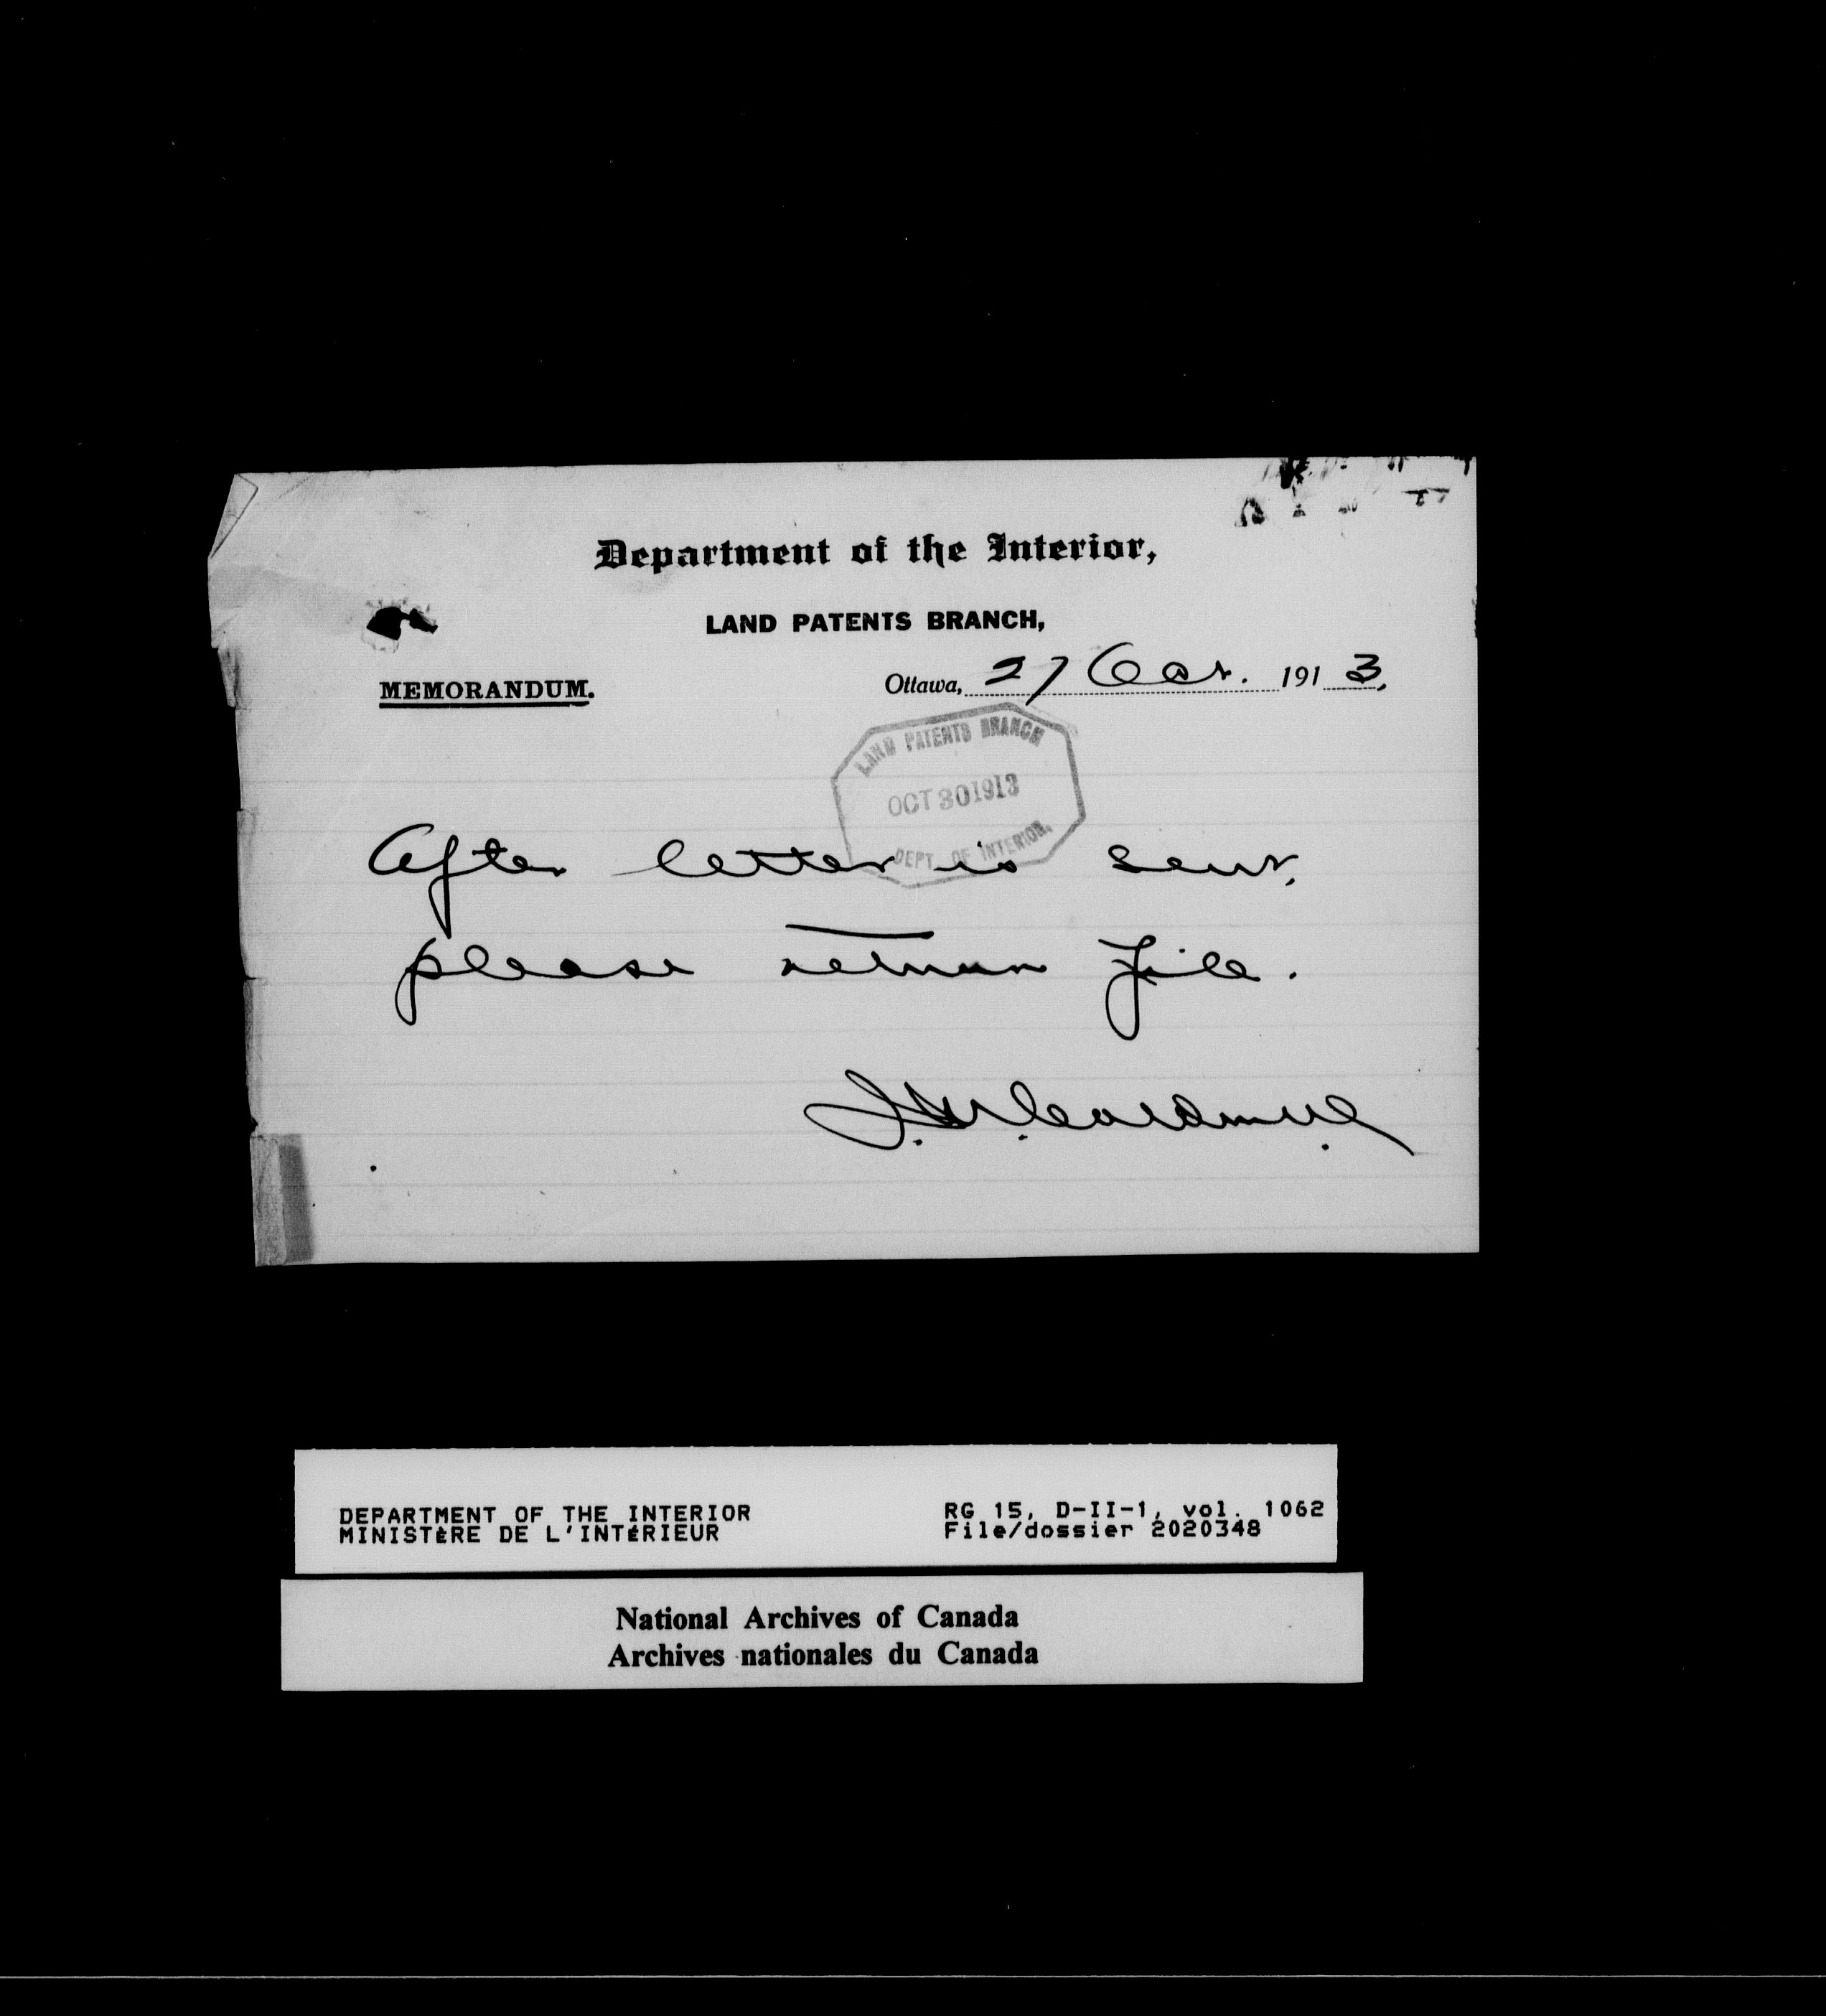 Department of the Interior,
LAND PATENTS BRANCH,
MEMORANDUM.
Ottawa, 27 Oct. 1913.
LAND PATENTS BRANCH
OCT 30 1913
DEPT. OF INTERIOR.
After letter is sent,
please return file.
DEPARTMENT OF THE INTERIOR
MINISTÈRE DE L'INTÉRIEUR
RG 15, D-II-1, vol. 1062
File/dossier 2020348
National Archives of Canada
Archives nationales du Canada